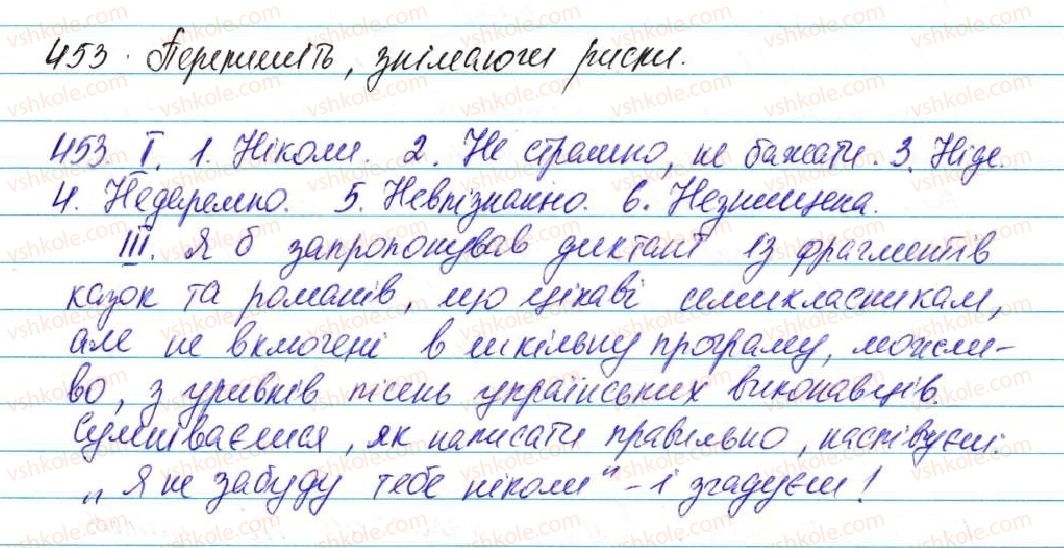 453. Перепишіть, знімаючи риски.
453. І. 1. Ніколи. 2. Не страшно, не бажати. 3. Ніде.
4. Недаремно. 5. Невпізнанно. 6. Незнищена.
ІІІ. Я б запропонував диктант із фрагментів
казок та романів, що цікаві семикласникам,
але не включені в шкільну програму, можли-
во, з уривків пісень українських виконавців.
Сумніваєшся, як написати правильно, наспівуєш:
„Я не забуду тебе ніколи" – і згадуєш!